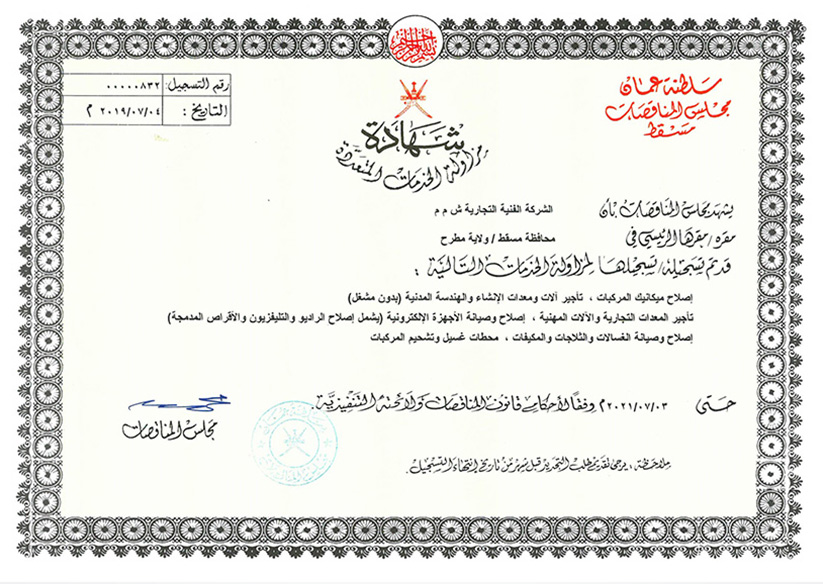 بسم الله الرحمن الرحيم
سلطنة عمان
مجلس المناقصات
مسقط
رقم التسجيل: ٠٠٠٠٠٨٣٢
التاريخ: ٢٠١٩/٠٧/٠٤ م
شهادة
مزاولة الخدمات المتعددة
يشهد مجلس المناقصات بأن الشركة الفنية التجارية ش م م
مقره/مقرها الرئيسي في محافظة مسقط / ولاية مطرح
قد تم تسجيله/تسجيلها لمزاولة الخدمات التالية :
إصلاح ميكانيك المركبات ، تأجير آلات ومعدات الإنشاء والهندسة المدنية (بدون مشغل)
تأجير المعدات التجارية والآلات المهنية ، إصلاح وصيانة الأجهزة الإلكترونية (يشمل إصلاح الراديو والتليفزيون والأقراص المدمجة)
إصلاح وصيانة الغسالات والثلاجات والمكيفات ، محطات غسيل وتشحيم المركبات
حتى ٢٠٢١/٠٧/٠٣م وفقا لأحكام قانون المناقصات ولائحته التنفيذية.
مجلس المناقصات
ملاحظة : يرجى تقديم طلب التجديد قبل شهر من تاريخ إنتهاء التسجيل.